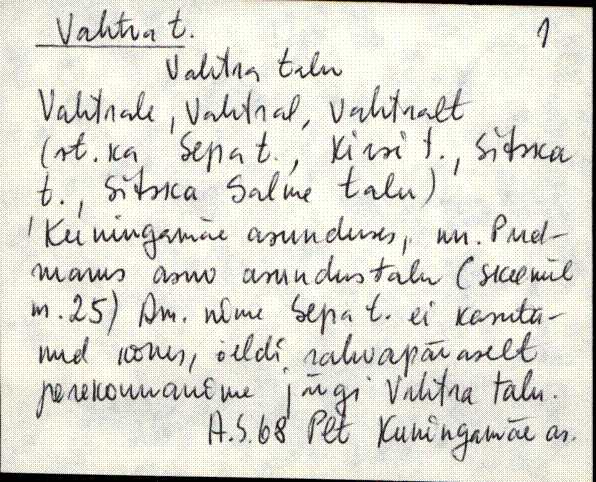 Vahtra t. 1
Vahtra talu
Vahtrale, Vahtral, Vahtralt
(st. ka Sepa t., Kirsi t., Sitska
t., Sitska Salme talu)
Kuningamäe asunduses, nn.
asundustalu (skeemil
nr. 25) Am. nime Sepa t. ei kasuta-
nud rahvapäraselt
perekonnanime järgi Vahtra talu.
A.S. 68 Plt Kuningamäe as.